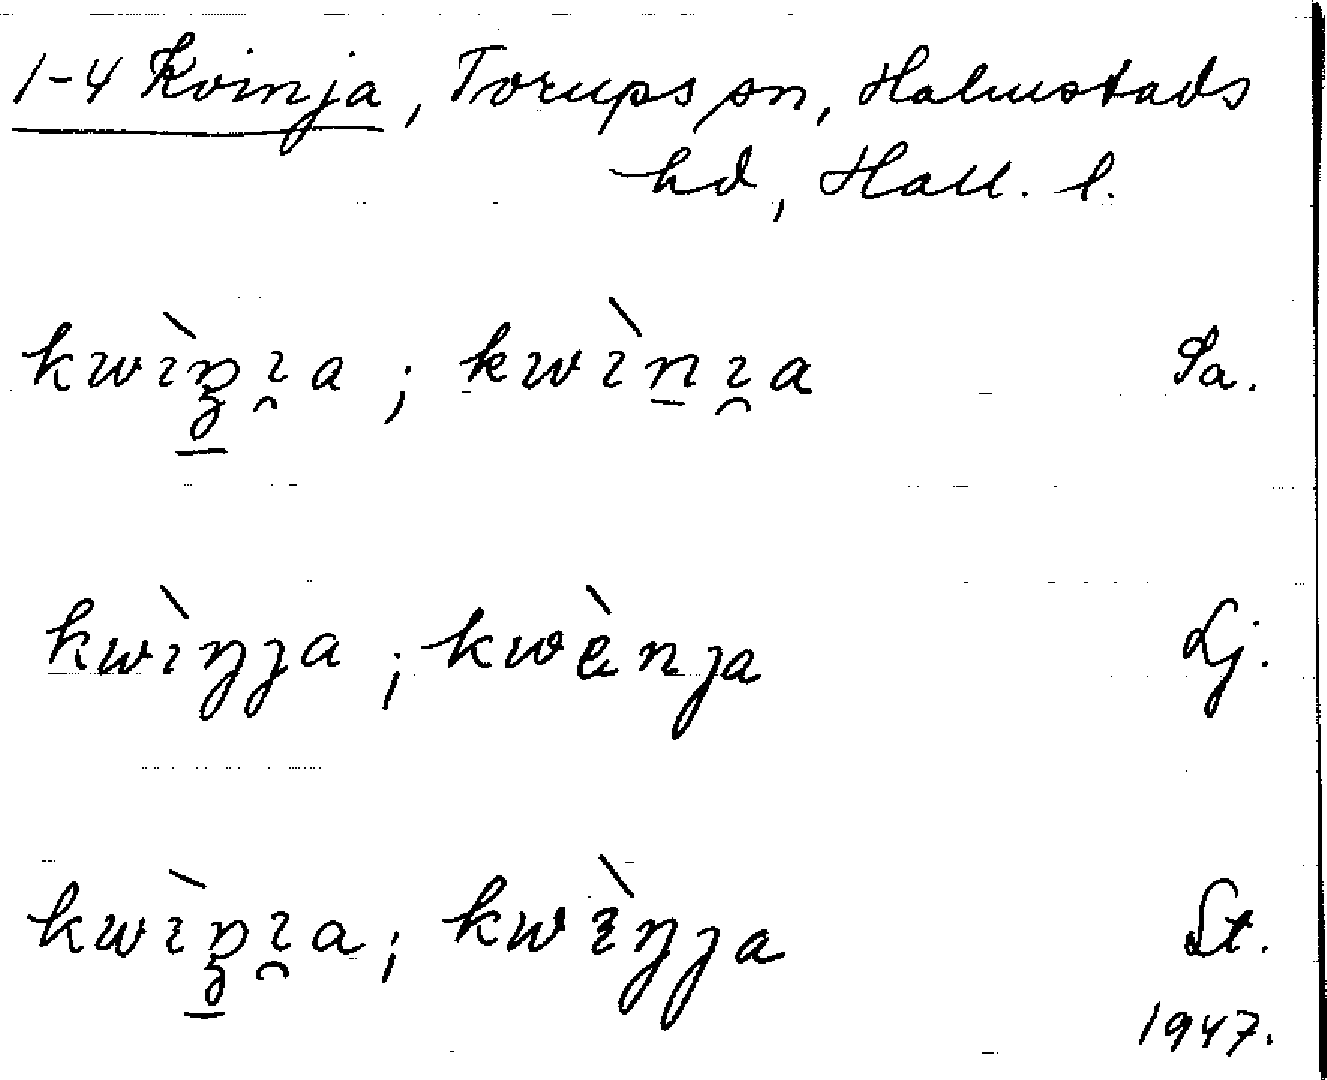 1-4 Kvinja, Torups sn, Halmstads
hd, Hall. l.
kwìn̠ı̯a ; kwìn̠ı̯a Sa.
kwìŋȷa ; kwènȷa Lj.
kwìn̠ı̯a ; kwìŋȷa St.
1947.